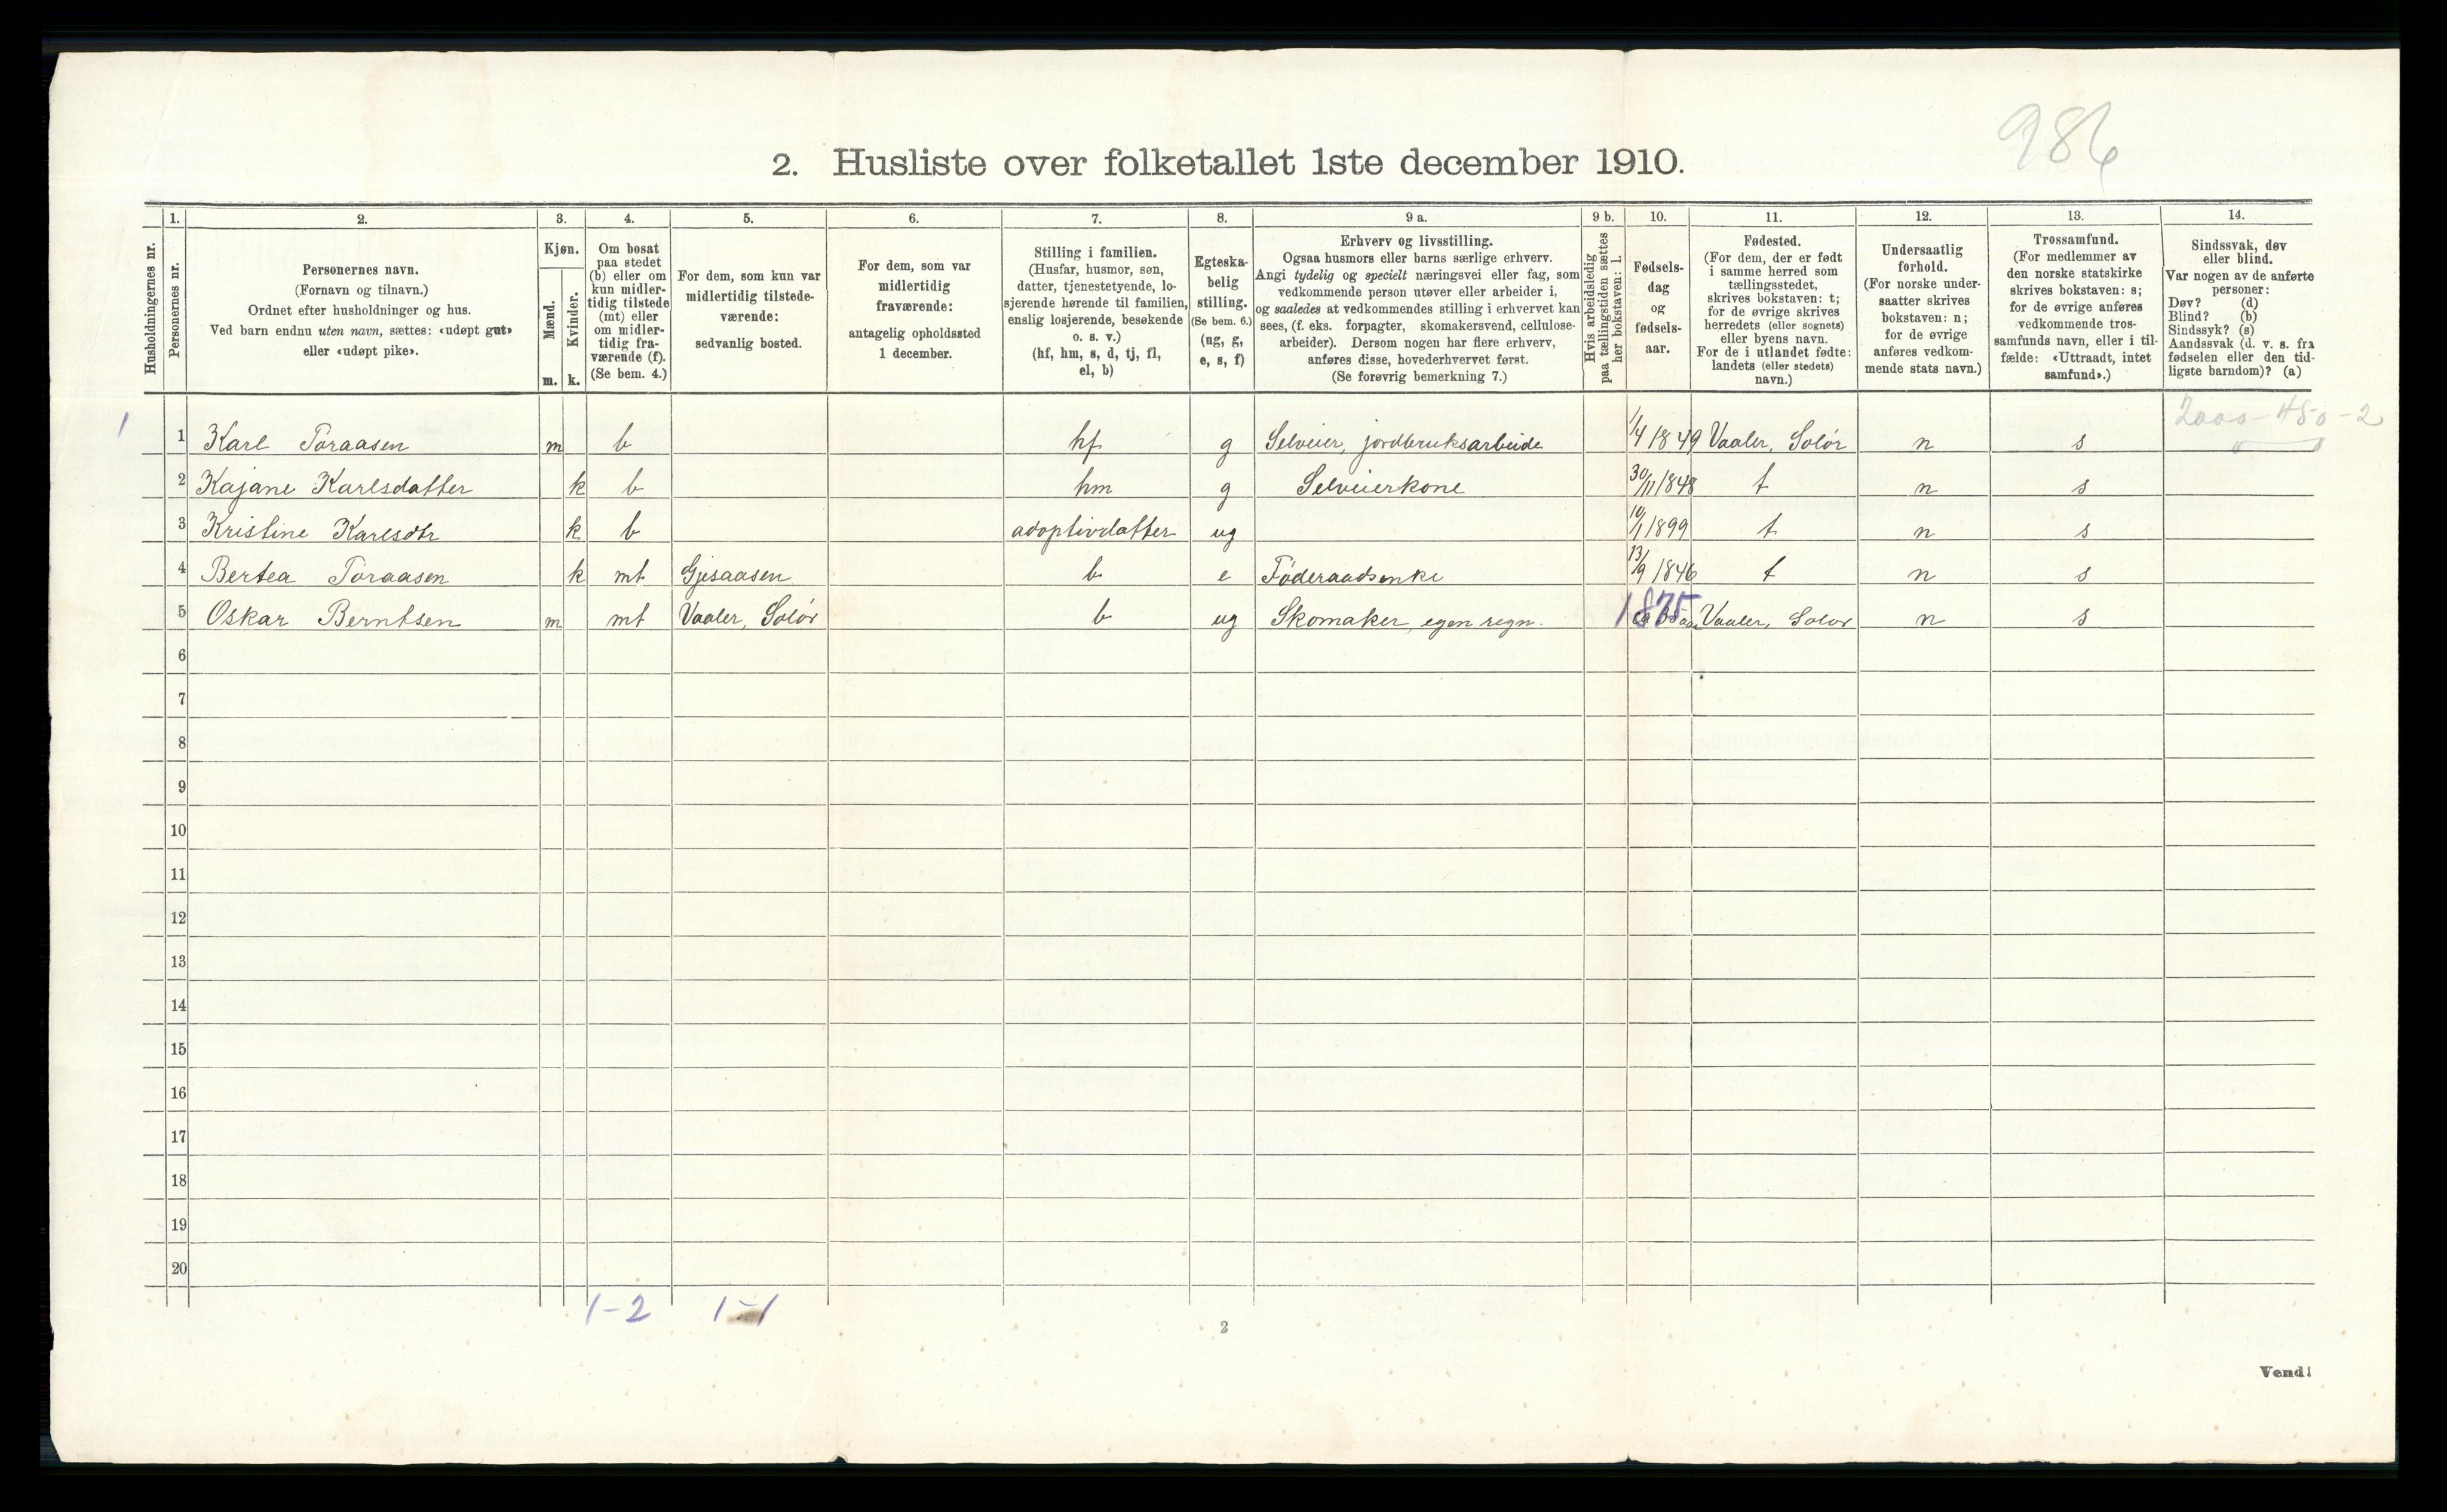 986
2. Husliste over folketallet 1ste december 1910.
Husholdningernes nr.
1.
Personernes nr.
2.
Personernes navn.
(Fornavn og tilnavn.)
Ordnet efter husholdninger og hus.
Ved barn endnu uten navn, sættes: «udøpt gut»
eller «udøpt pike».
3.
Kjøn.
Mænd.
Kvinder.
m. k.
4.
Om bosat
paa stedet
(b) eller om
kun midler-
tidig tilstede
(mt) eller
om midler-
tidig fra-
værende (f).
(Se bem. 4.)
5.
For dem, som kun var
midlertidig tilstede-
værende:
sedvanlig bosted.
6.
For dem, som var
midlertidig
fraværende:
antagelig opholdssted
1 december.
7.
Stilling i familien.
(Husfar, husmor, søn,
datter, tjenestetyende, lo-
sjerende hørende til familien,
enslig losjerende, besøkende
o. s. v.)
(hf, hm, s, d, tj, fl,
el, b)
8.
Egteska-
belig
stilling.
(Se bem. 6.)
(ug, g,
e, s, f)
9 a.
Erhverv og livsstilling.
Ogsaa husmors eller barns særlige erhverv.
Angi tydelig og specielt næringsvei eller fag, som
vedkommende person utøver eller arbeider i,
og saaledes at vedkommendes stilling i erhvervet kan
sees, (f. eks. forpagter, skomakersvend, cellulose-
arbeider). Dersom nogen har flere erhverv,
anføres disse, hovederhvervet først.
(Se forøvrig bemerkning 7.)
9 b.
Hvis arbeidsledig
paa tællingstiden sættes
her bokstaven: l.
10.
Fødsels-
dag
og
fødsels-
aar.
11.
Fødested.
(For dem, der er født
i samme herred som
tællingsstedet,
skrives bokstaven: t;
for de øvrige skrives
herredets (eller sognets)
eller byens navn.
For de i utlandet fødte:
landets (eller stedets)
navn.)
12.
Undersaatlig
forhold.
(For norske under-
saatter skrives
bokstaven: n;
for de øvrige
anføres vedkom-
mende stats navn.)
13.
Trossamfund.
(For medlemmer av
den norske statskirke
skrives bokstaven: s;
for de øvrige anføres
vedkommende tros-
samfunds navn, eller i til-
fælde: «Uttraadt, intet
samfund».)
14.
Sindssvak, døv
eller blind.
Var nogen av de anførte
personer:
Døv? (d)
Blind? (b)
Sindssyk? (s)
Aandssvak (d. v. s. fra
fødselen eller den tid-
ligste barndom)? (a)
2000-450-2
1 1 Karl Toraasen m b hf g Selveier, jordbruksarbeide 1/4 1849 Vaaler, Solør n s
2 Kajane Karlsdatter k b hm g Selveierkone 30/11 1848 t n s
3 Kristine Karlsdtr k b adoptivdatter ug 10/1 1899 t n s
4 Bertea Toraasen k mt Gjesaasen b e Föderaadsenke 13/9 1846 t n s
5 Oskar Berntsen m mt Vaaler, Solör b ug Skomaker, egen regn. 1875 Vaaler, Solør n s
6
7
8
9
10
11
12
13
14
15
16
17
18
19
20
1-2 1-1
2
Vend!